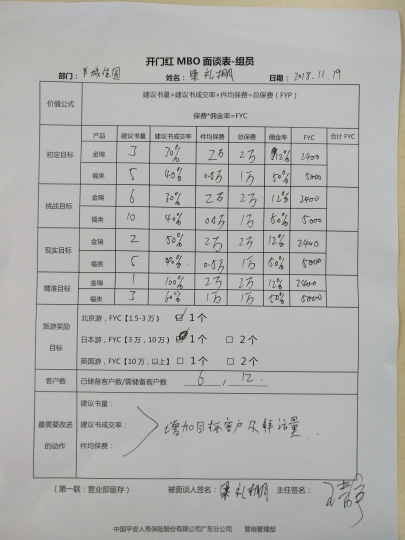 开门红 MBO 面谈表-组员
部门： 姓名： 日期：2018.11.19
价值公式 建议书量×建议书成交率×件均保费=总保费（FYP）
保费*佣金率=FYC
产品 建议书量 建议书成交率 件均保费 总保费 佣金率 FYC 合计 FYC
初定目标 金瑞 3 30% 2万 2万 12% 2400
福类 5 40% 0.5万 1万 50% 5000
挑战目标 金瑞 6 30% 2万 2万 12% 2400
福类 10 40% 0.5万 1万 50% 5000
现实目标 金瑞 2 50% 2万 2万 12% 2400
福类 5 40% 0.5万 1万 50% 5000
精准目标 金瑞 1 100% 2万 2万 12% 2400
福类 3 60% 1万 1万 50% 5000
旅游奖励目标
北京游，FYC【1.5-3 万】 □ 1个
日本游，FYC【3 万，10 万】 □ 1个 □ 2个
英国游，FYC【10 万，以上】 □ 1个 □ 2个
客户数 已储备客户数/需储备客户数 6 , 12.
最需要改进的动作
建议书量：
建议书成交率： 增加目标客户及拜访量.
件均保费：
（第一联：营业部留存） 被面谈人签名： 主任签名：
中国平安人寿保险股份有限公司广东分公司 营销管理部